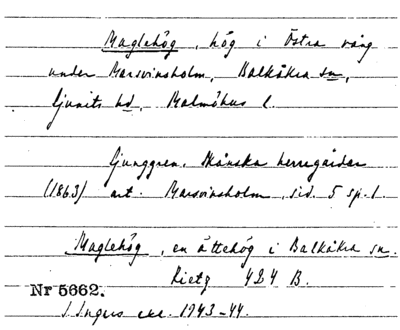 Maglehög, hög i Östra vång
under Marsvinsholm, Balkåkra sn,
Ljunits hd, Malmöhus l.
Ljunggren, Skånska herregårdar
(1863) art. Marsvinsholm, sid. 5 sp. 1.
Maglehög, en ättehög i Balkåkra sn.
Rietz 424 B.
Nr 5662.
I. Ingers exc. 1943-44.